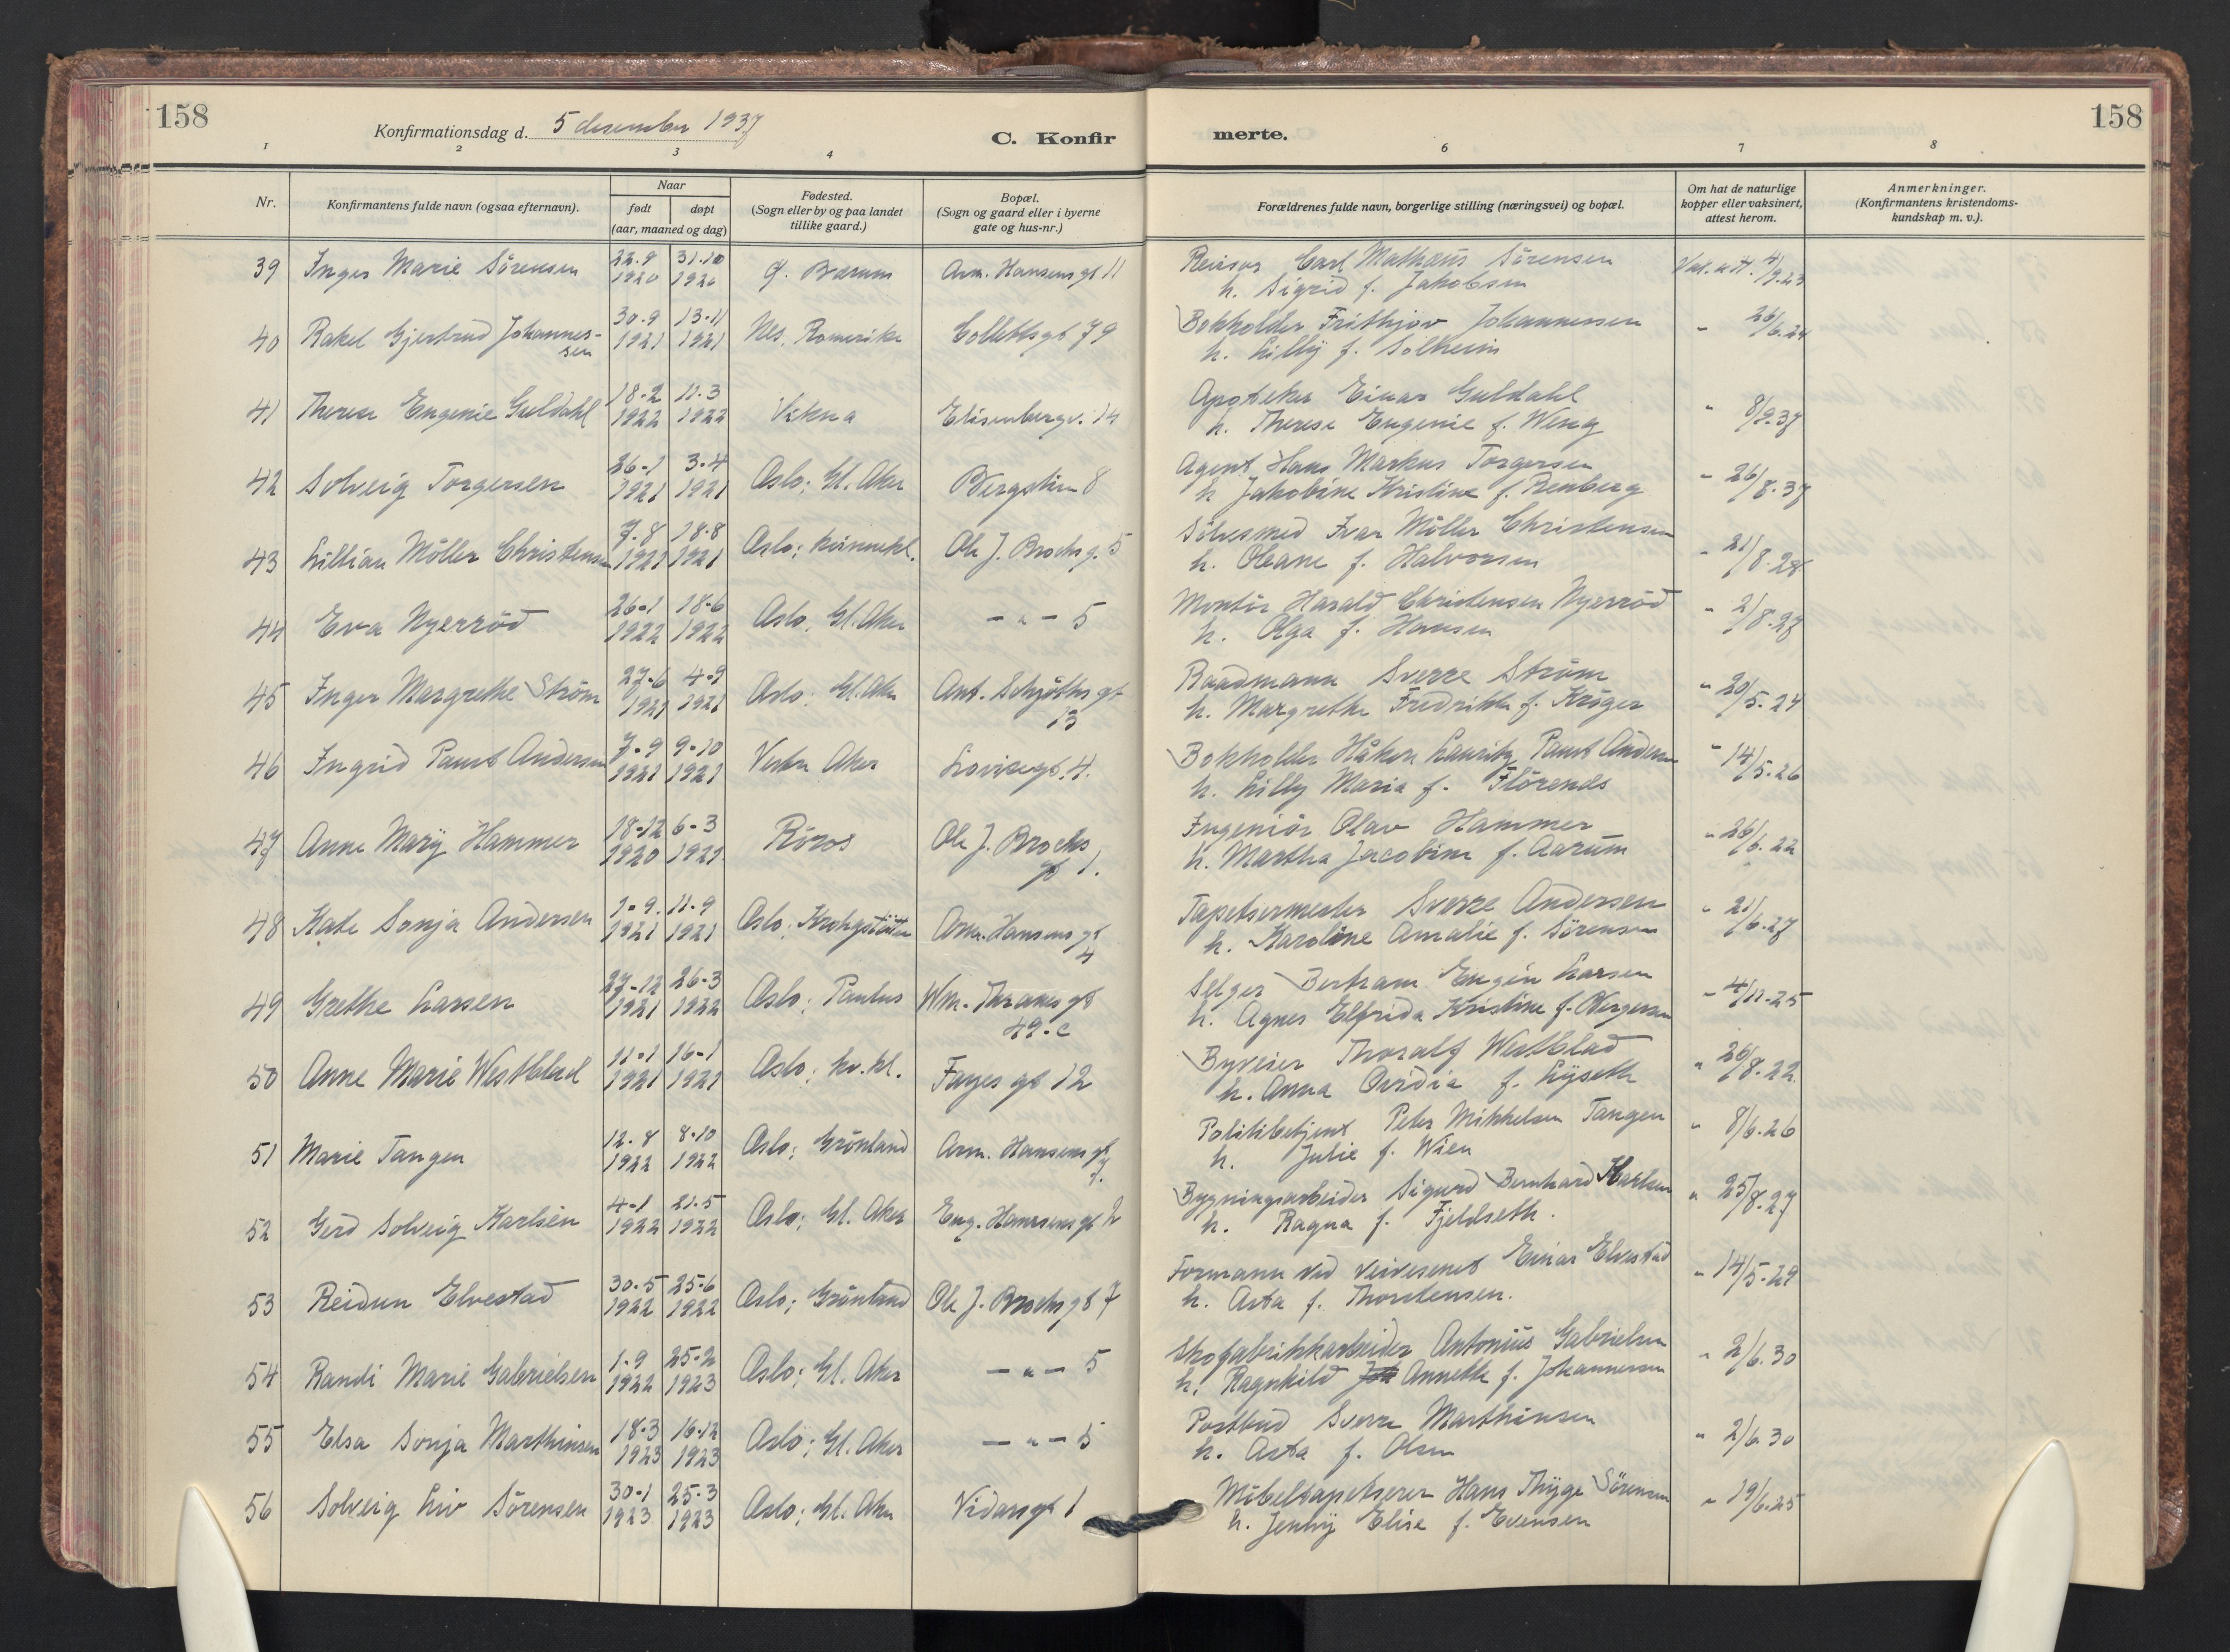 158
158
Konfirmationsdag d. 5 desember 1937
C. Konfir
merte.
1 2 3 4 6 7 8
Nr.
Konfirmantens fulde navn (ogsaa efternavn).
Naar
født døpt
(aar, maaned og dag)
Fødested.
(Sogn eller by og paa landet
tillike gaard.)
Bopæl.
(Sogn og gaard eller i byerne
gate og hus-nr.)
Forældrenes fulde navn, borgerlige stilling (næringsvei) og bopæl.
Om hat de naturlige
kopper eller vaksinert,
attest herom.
Anmerkninger.
(Konfirmantens kristendoms-
kundskap m. v.).
39 Inger Marie Sörensen 22.9 1920 31.10 1920 Ø. Bærum Arn. Hansens gt 11
Revisor Carl Mathæus Sörensen
h. Sigrid f. Jakobsen
40 Rakel Gjertrud Johannes-
sen 30.9 1921 13.11 1921 Nes, Romerike Collettsgt 79
Bokholder Frithjov Johannessen
h. Lilly f. Solheim
" 26/6.24
41 Therese Eugenie Guldahl 18-2 1922 11.3 1922 Vikna Elisenbergv. 14
Apoteker Einar Guldahl
h. Therese Eugenie f. Weng
" 8/9.37
42 Solveig Torgersen 26-1 1921 3-4 1921 Oslo; Gl. Aker Bergstien 8
Agent Hans Markus Torgersen
h Jakobine Kristine f. Renberg
" 26/8.37
43 Lillian Möller Christensen 7.8 1921 18.8 1921 Oslo; kvinnekl. Ole J. Brochs g. 5
Sölvsmed Ivar Möller Christensen
h. Oleane f. Halvorsen
" 21/8.28
44 Eva Nyerröd 26-1 1922 18-6 1922 Oslo; Gl. Aker - " - 5
Montör Harald Christensen Nyerröd
h. Olga f. Hansen
" 2/8.27
45 Inger Margrethe Ström 27-6 1921 4-9 1921 Oslo; Gl. Aker Ant. Schjöths gt
13
Raadmann Sverre Ström
h. Margrethe Fredrikke f. Kröger
" 20/5.24
46 Ingrid Paust Andersen 7-9 1921 9-10 1921 Vestre Aker Lovisegt. 4.
Bokholder Håkon Lauritz Paust Andersen
h. Lilly Maria f. Flörenæs
" 14/5.26
47 Anne Mary Hammer 18-12 1920 6-3 1921 Röros Ole J. Brochs
gt 1.
Ingeniör Olav Hammer
h. Martha Jacobine f. Aarum
" 26/6.22
48 Kate Sonja Andersen 1-9. 1921 11-9 1921 Oslo; Krohgstötten Arn. Hansens gt
4
Tapetsermester Sverre Andersen
h. Karoline Amalie f. Sörensen
" 21/6.27
49 Grethe Larsen 27-12 1921 26-3 1922 Oslo; Paulus Wm. Thranes gt
49.c
Selger Bertram Eugen Larsen
h. Agnes Elfrida Kristine f. Børgersen
" 4/11-25
50 Anne Marie Westblad 11-1 1921 16-1 1921 Oslo; kv.kl. Fayes gt 12
Byveier Thoralf Westblad
h. Anna Ovidia f. Lyseth
" 26/8.22
51 Marie Tangen 12.8 1922 8-10 1922 Oslo; Grönland Arn. Hansens gt
7.
Politibetjent Peter Mikkelsen Tangen
h. Julie f. Wien
" 8/6.26
52 Gerd Solveig Karlsen 4-1 1922 21.5 1922 Oslo; Gl. Aker Eug. Hanssens gt 2
Bygningsarbeider Sigurd Bernhard Karlsen
h. Ragna f. Fjeldseth.
" 25/8.27
53 Reidun Elvestad 30-5 1922 25-6 1922 Oslo; Grönland Ole J. Brochs gt 7
Formann ved veivesenet Einar Elvestad
h. Asta f. Thorstensen.
" 14/5.29
54 Randi Marie Gabrielsen 1-9 1922 25-2 1923 Oslo; Gl. Aker - " - 5
Skofabrikkarbeider Antonius Gabrielsen
h. Ragnhild Joh Annette f. Johannesen
" 2/6.30
55 Elsa Sonja Marthinsen 18-3 1923 16.12 1923 Oslo; Gl. Aker - " - 5
Postbud Sverre Marthinsen
h. Asta f. Olsen
" 2/6.30
56 Solveig Liv Sörensen 30-1 1923 25-3 1923 Oslo; Gl. Aker Vidarsgt 1
Möbeltapetserer Hans Thyge Sörensen
h. Jenny Elise f. Evensen
" 19/6.25